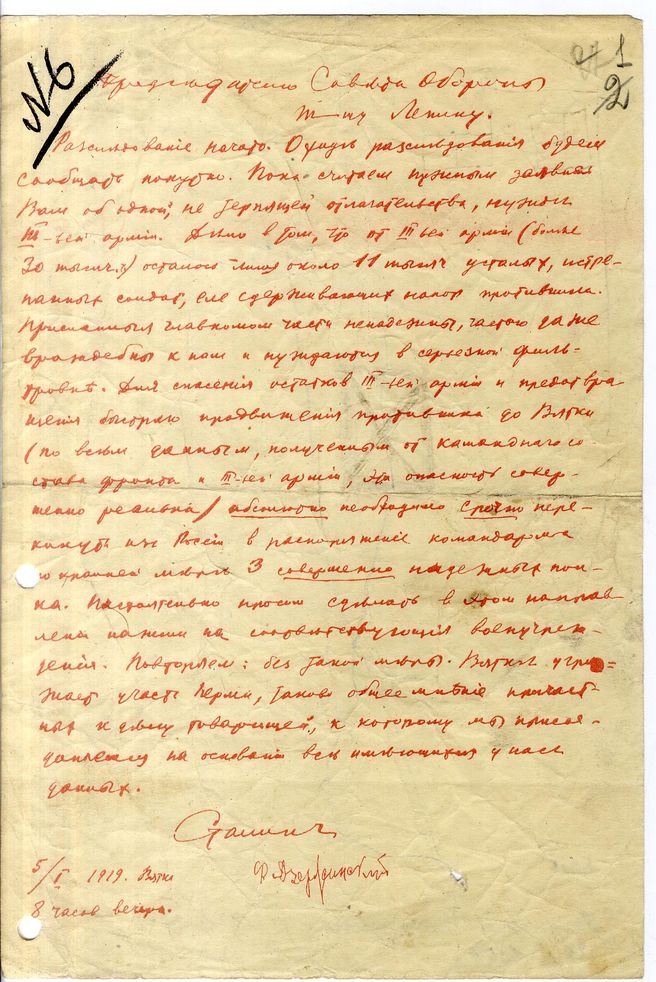 №6
1
2
Председателю Совета Обороны
т-щу Ленину.
Разследование начато. О ходе разследования будем
сообщать попутно. Пока считаем нужным заявить
Вам об одной, не терпящей отлагательства, нужде
III-ьей армии. Дело в том, что от III-ьей армии (более
30 тысяч) осталось лишь около 11 тысяч усталых, истре-
панных солдат, еле сдерживающих напор противника.
Присланныя главкомом части ненадежны, частью даже
враждебны к нам и нуждаются в серьезной филь-
тровке. Для спасения остатков III-ьей армии и предотвра-
щения быстраго продвижения противника до Вятки
(по всем данным, полученным от командного со-
става фронта и III-ьей армии, эта опасность совер-
шенно реальна) абсолютно необходимо срочно пере-
кинуть из России в распоряжение командарма
по крайней мере 3 совершенно надежных пол-
ка. Настоятельно просим сделать в этом направ-
лении нажим на соответствующия военучреж-
дения. Повторяем: без такой меры Вятке угро-
жает участь Перми, таково общее мнение причаст-
ных к делу товарищей, к которому мы присое-
диняемся на основании всех имеющихся у нас
данных.
Сталин
5/I 1919. Вятка
Ф. Дзержинский
8 часов вечера.